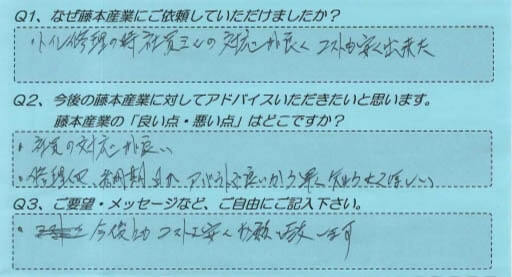 Q1、なぜ藤本産業にご依頼していただけましたか？
トイレ修理の時社員さんの対応が良く コストも安く出来た
Q2、今後の藤本産業に対してアドバイスいただきたいと思います。
藤本産業の「良い点・悪い点」はどこですか？
・社員の対応が良い
・修理他、納期日が アバウトで良いから早く知らせてほしい
Q3、ご要望・メッセージなど、ご自由にご記入下さい。
・今後とも コストは安くお願い致します